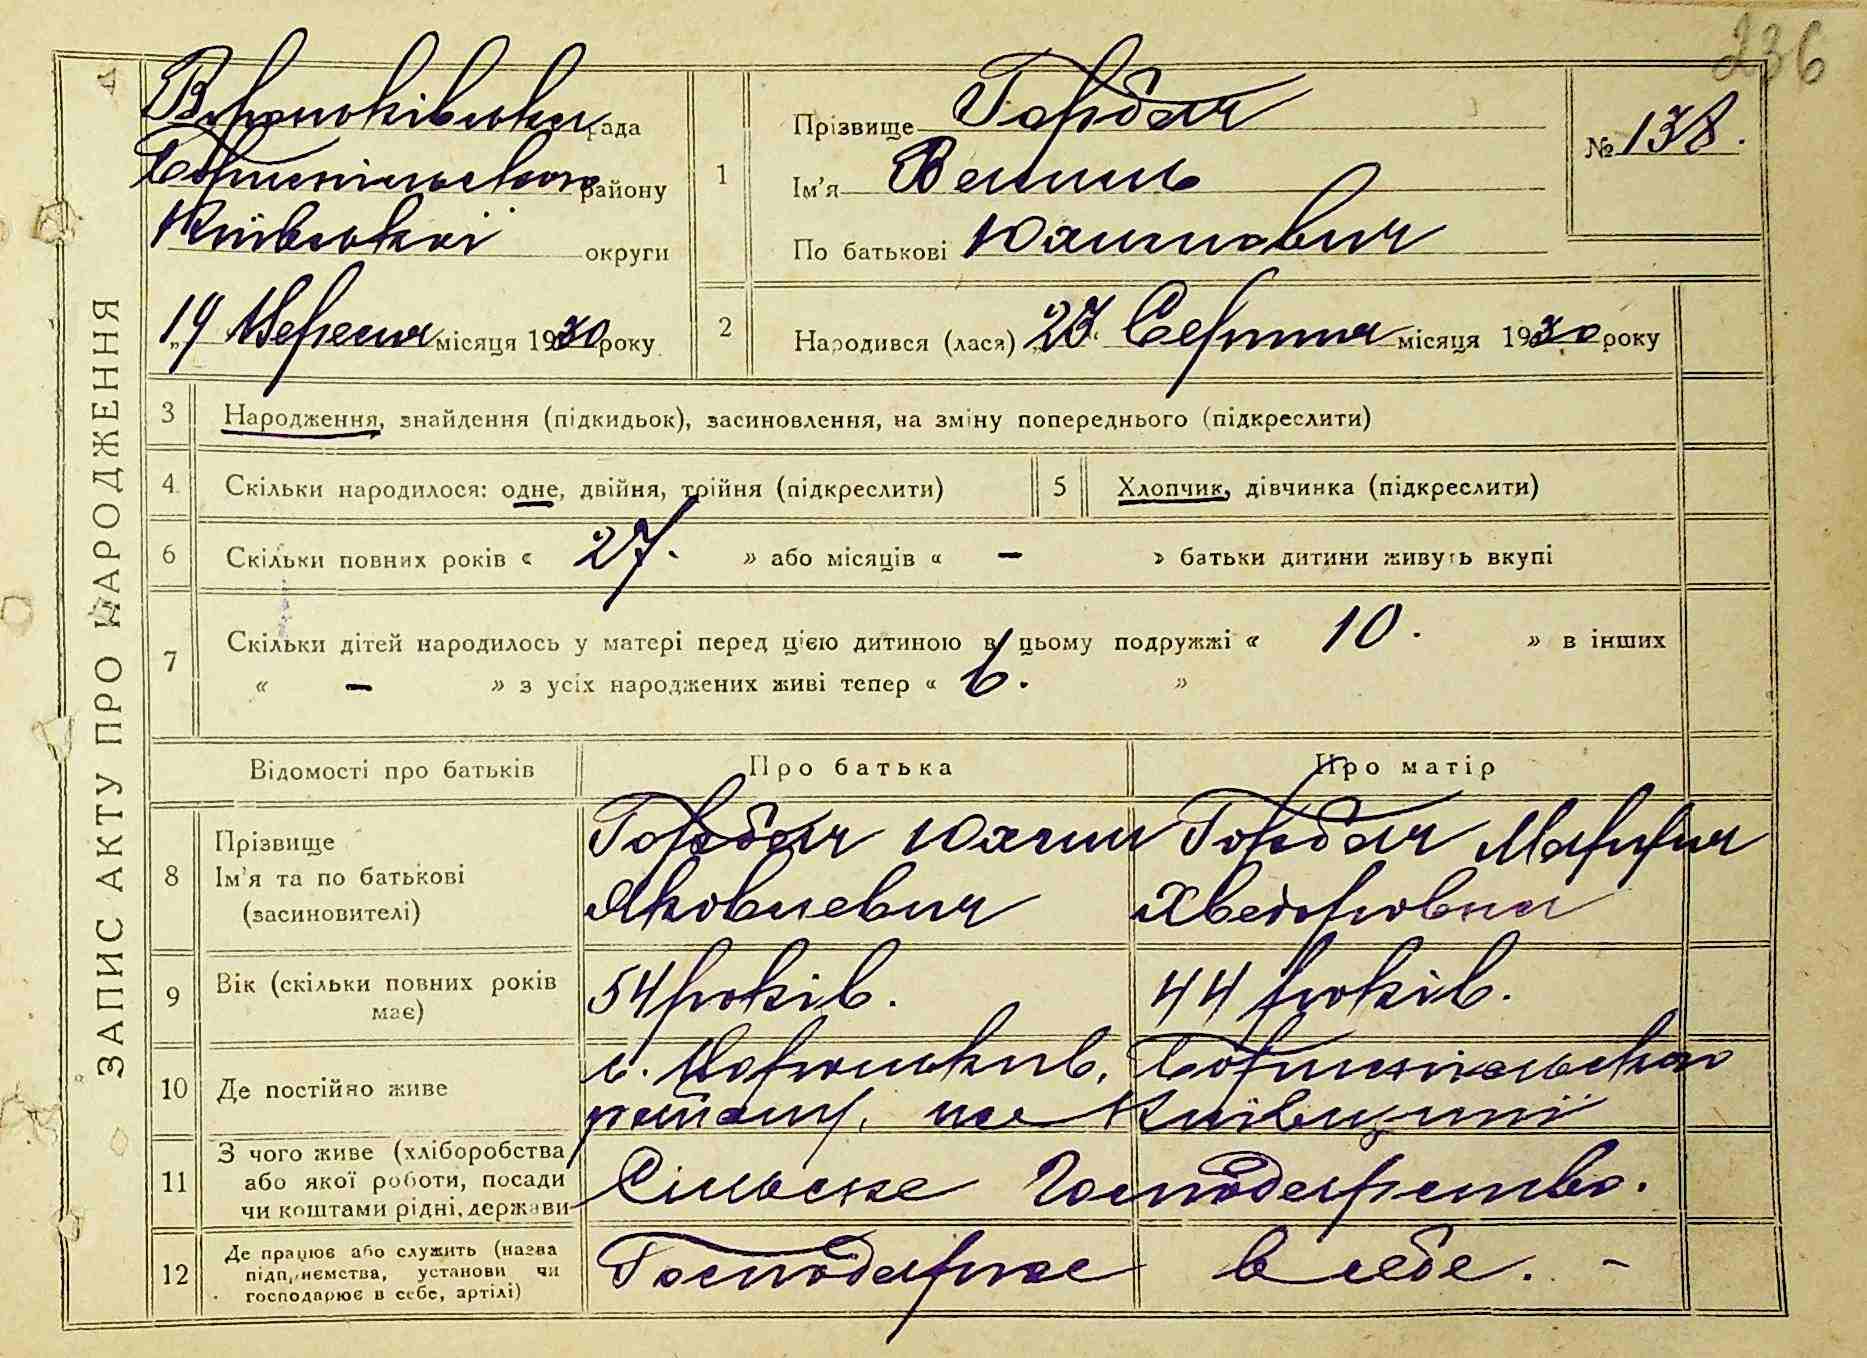 236
ЗАПИС АКТУ ПРО НАРОДЖЕННЯ
Вороньківська рада
Бориспільського району
Київської округи
„19 Вересня місяця 1930 року
1
Прізвище Горбач
Ім'я Василь
По батькові Юхимович
№ 138.
2 Народився (лася) „23“ Серпня місяця 1930 року
3 Народження, знайдення (підкидьок), засиновлення, на зміну попереднього (підкреслити)
4 Скільки народилося: одне, двійня, трійня (підкреслити) 5 Хлопчик, дівчинка (підкреслити)
6 Скільки повних років « 27. » або місяців « – » батьки дитини живуть вкупі
7 Скільки дітей народилось у матері перед цією дитиною в цьому подружжі « 10. » в інших
« – » з усіх народжених живі тепер « 6. »
Відомості про батьків Про батька Про матір
8 Прізвище
Ім'я та по батькові
(засиновителі)
Горбач Юхим
Яковлевич
Горбач Марфа
Хведоровна
9 Вік (скільки повних років
має)
54 років. 44 років.
10 Де постійно живе
с. Вороньків, Бориспільського
району, на Київщині
11 З чого живе (хліборобства
або якої роботи, посади
чи коштами рідні, держави
Сільське Господарство.
12 Де працює або служить (назва
підприємства, установи чи
господарює в себе, артілі)
Господарює в себе. –